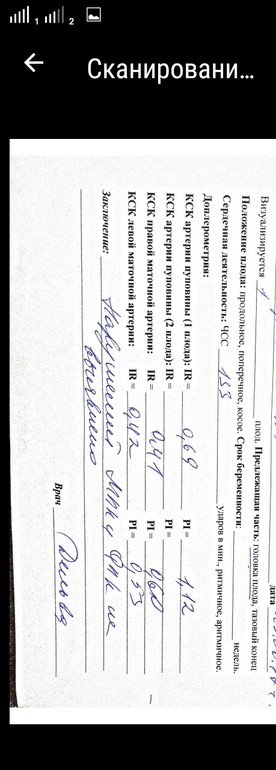 1 2
Сканировани...
дата
Визуализируется 1 плод. Предлежащая часть: головка плода, тазовый конец
Положение плода: продольное, поперечное, косое. Срок беременности: недель.
Сердечная деятельность: ЧСС 133 ударов в мин., ритмичное, аритмичное.
Доплерометрия:
КСК артерии пуповины (1 плода): IR = 0,69 PI = 1,12
КСК артерии пуповины (2 плода): IR = PI =
КСК правой маточной артерии: IR = 0,41 PI = 0,60 –
КСК левой маточной артерии: IR = 0,42 PI = 0,573
Заключение: Нарушений МПК и ФПК не
выявлено
Врач